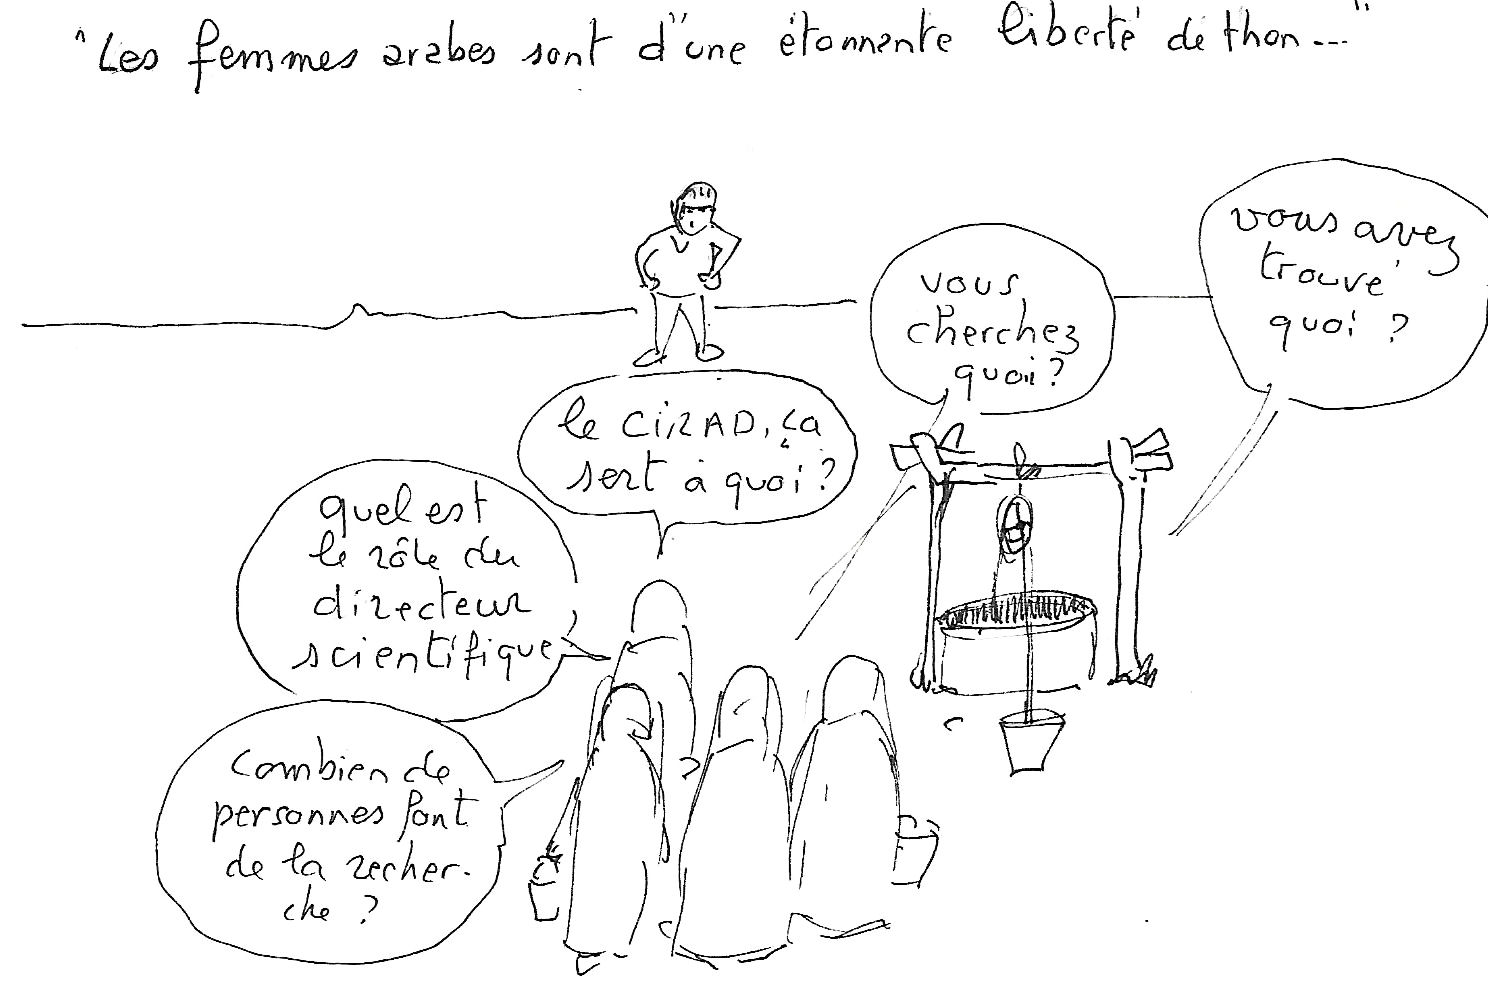 "Les femmes arabes sont d'une étonnante liberté de thon..."
vous avez
trouvé
quoi ?
vous
cherchez
quoi ?
le CIRAD, ça
sert à quoi ?
quel est
le rôle du
directeur
scientifique
combien de
personnes font
de la recher-
che ?